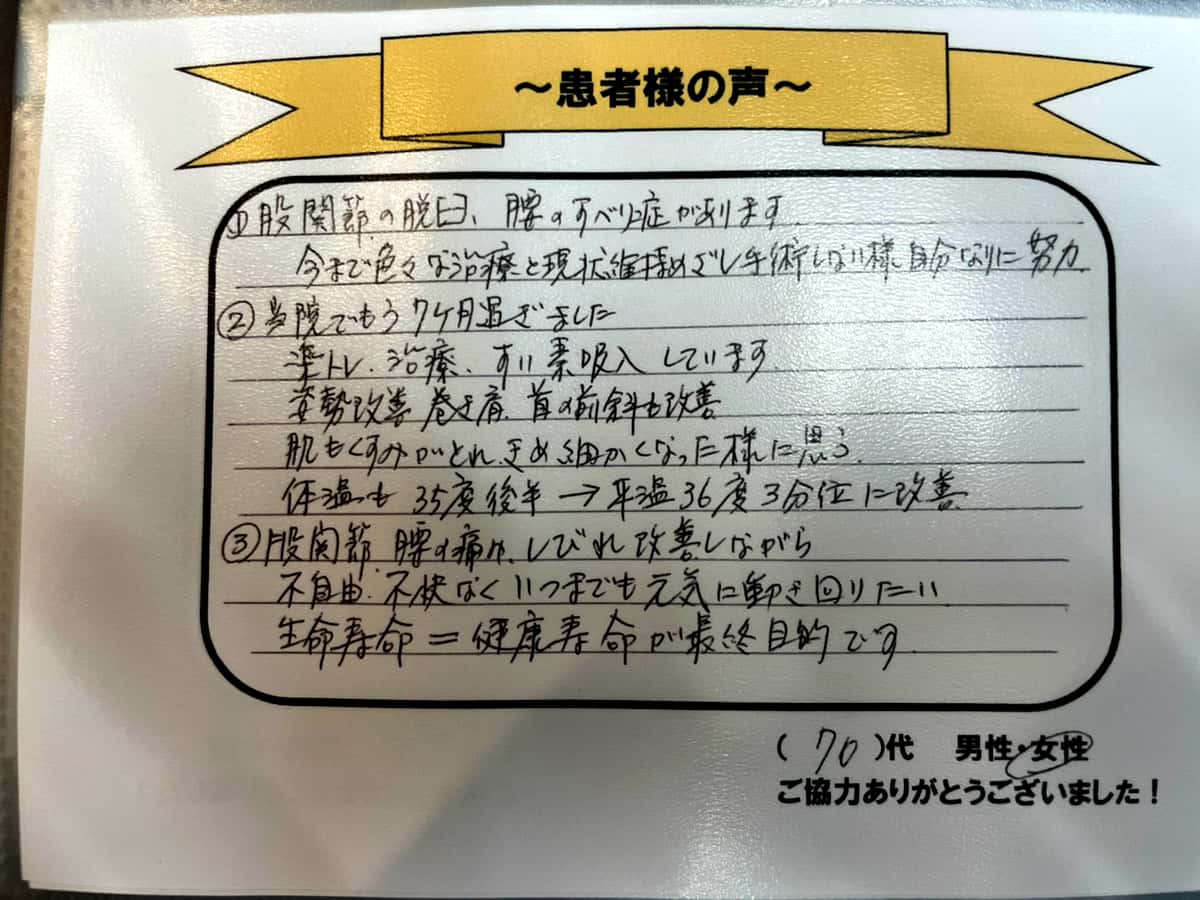 ～患者様の声～
①股関節の脱臼、腰のすべり症があります
今まで色々な治療と現状維持めざし手術しない様自分なりに努力
②当院でもう7ケ月過ぎました
楽トレ、治療、すい素吸入しています
姿勢改善 巻き肩、首の前斜も改善
肌もくすみがとれ、きめ細かくなった様に思う
体温も 35度後半→平温36度3分位に改善
③股関節、腰の痛み、しびれ改善しながら
不自由、不快なくいつまでも元気に動き回りたい
生命寿命＝健康寿命が最終目的です
（70）代 男性・女性
ご協力ありがとうございました！